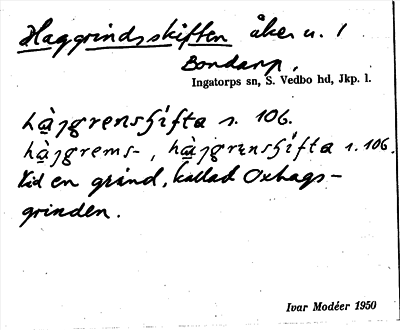 Haggrindsskiften åker u. 1
Bondarp,
Ingatorps sn, S. Vedbo hd, Jkp. l.
s. 106.
s. 106.
Vid en grind, kallad Oxhags-
grinden.
Ivar Modéer 1950